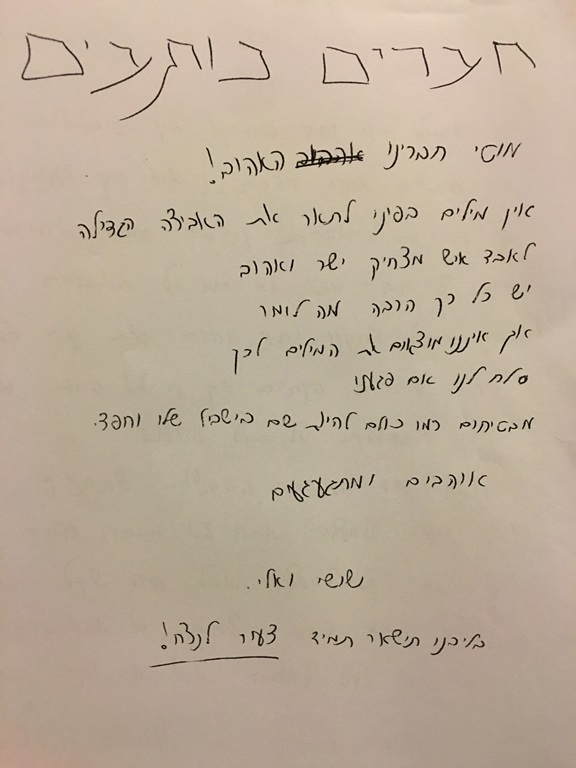 חברים כותבים
מוטי חברינו האהוב!
אין מילים בפינו לתאר את האבידה הגדולה
לאבד איש מצחיק ישר ואהוב
יש כל כך הרבה מה לומר
אך איננו מוצאים את המילים לכך
סלח לנו אם פגענו
מבטיחים כמו כולם להיות שם בישביל שלו וחסד.
אוהבים ומתגעגעים
שושי ואלי.
בליבנו תישאר תמיד צעיר לנצח!